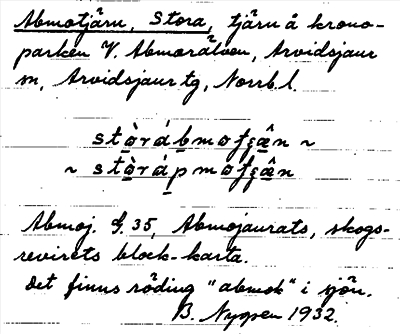 Abmotjärn, Stora, tjärn å krono-
parken V. Abmorälven, Arvidsjaur
sn, Arvidsjaur tg, Norrb. l.
stòrábmotjæ̂n ~
~ stòrápmotjæ̂n
Abmoj. G. 35, Abmojaurats, skogs-
revirets block-karta.
Det finns röding "abmok" i sjön.
B. Nygren 1932.